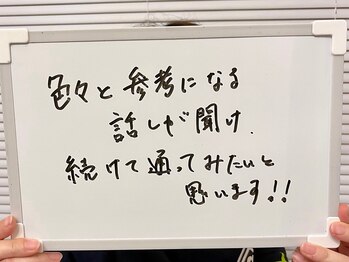 色々と参考になる
話しが聞け
続けて通ってみたいと
思います!!